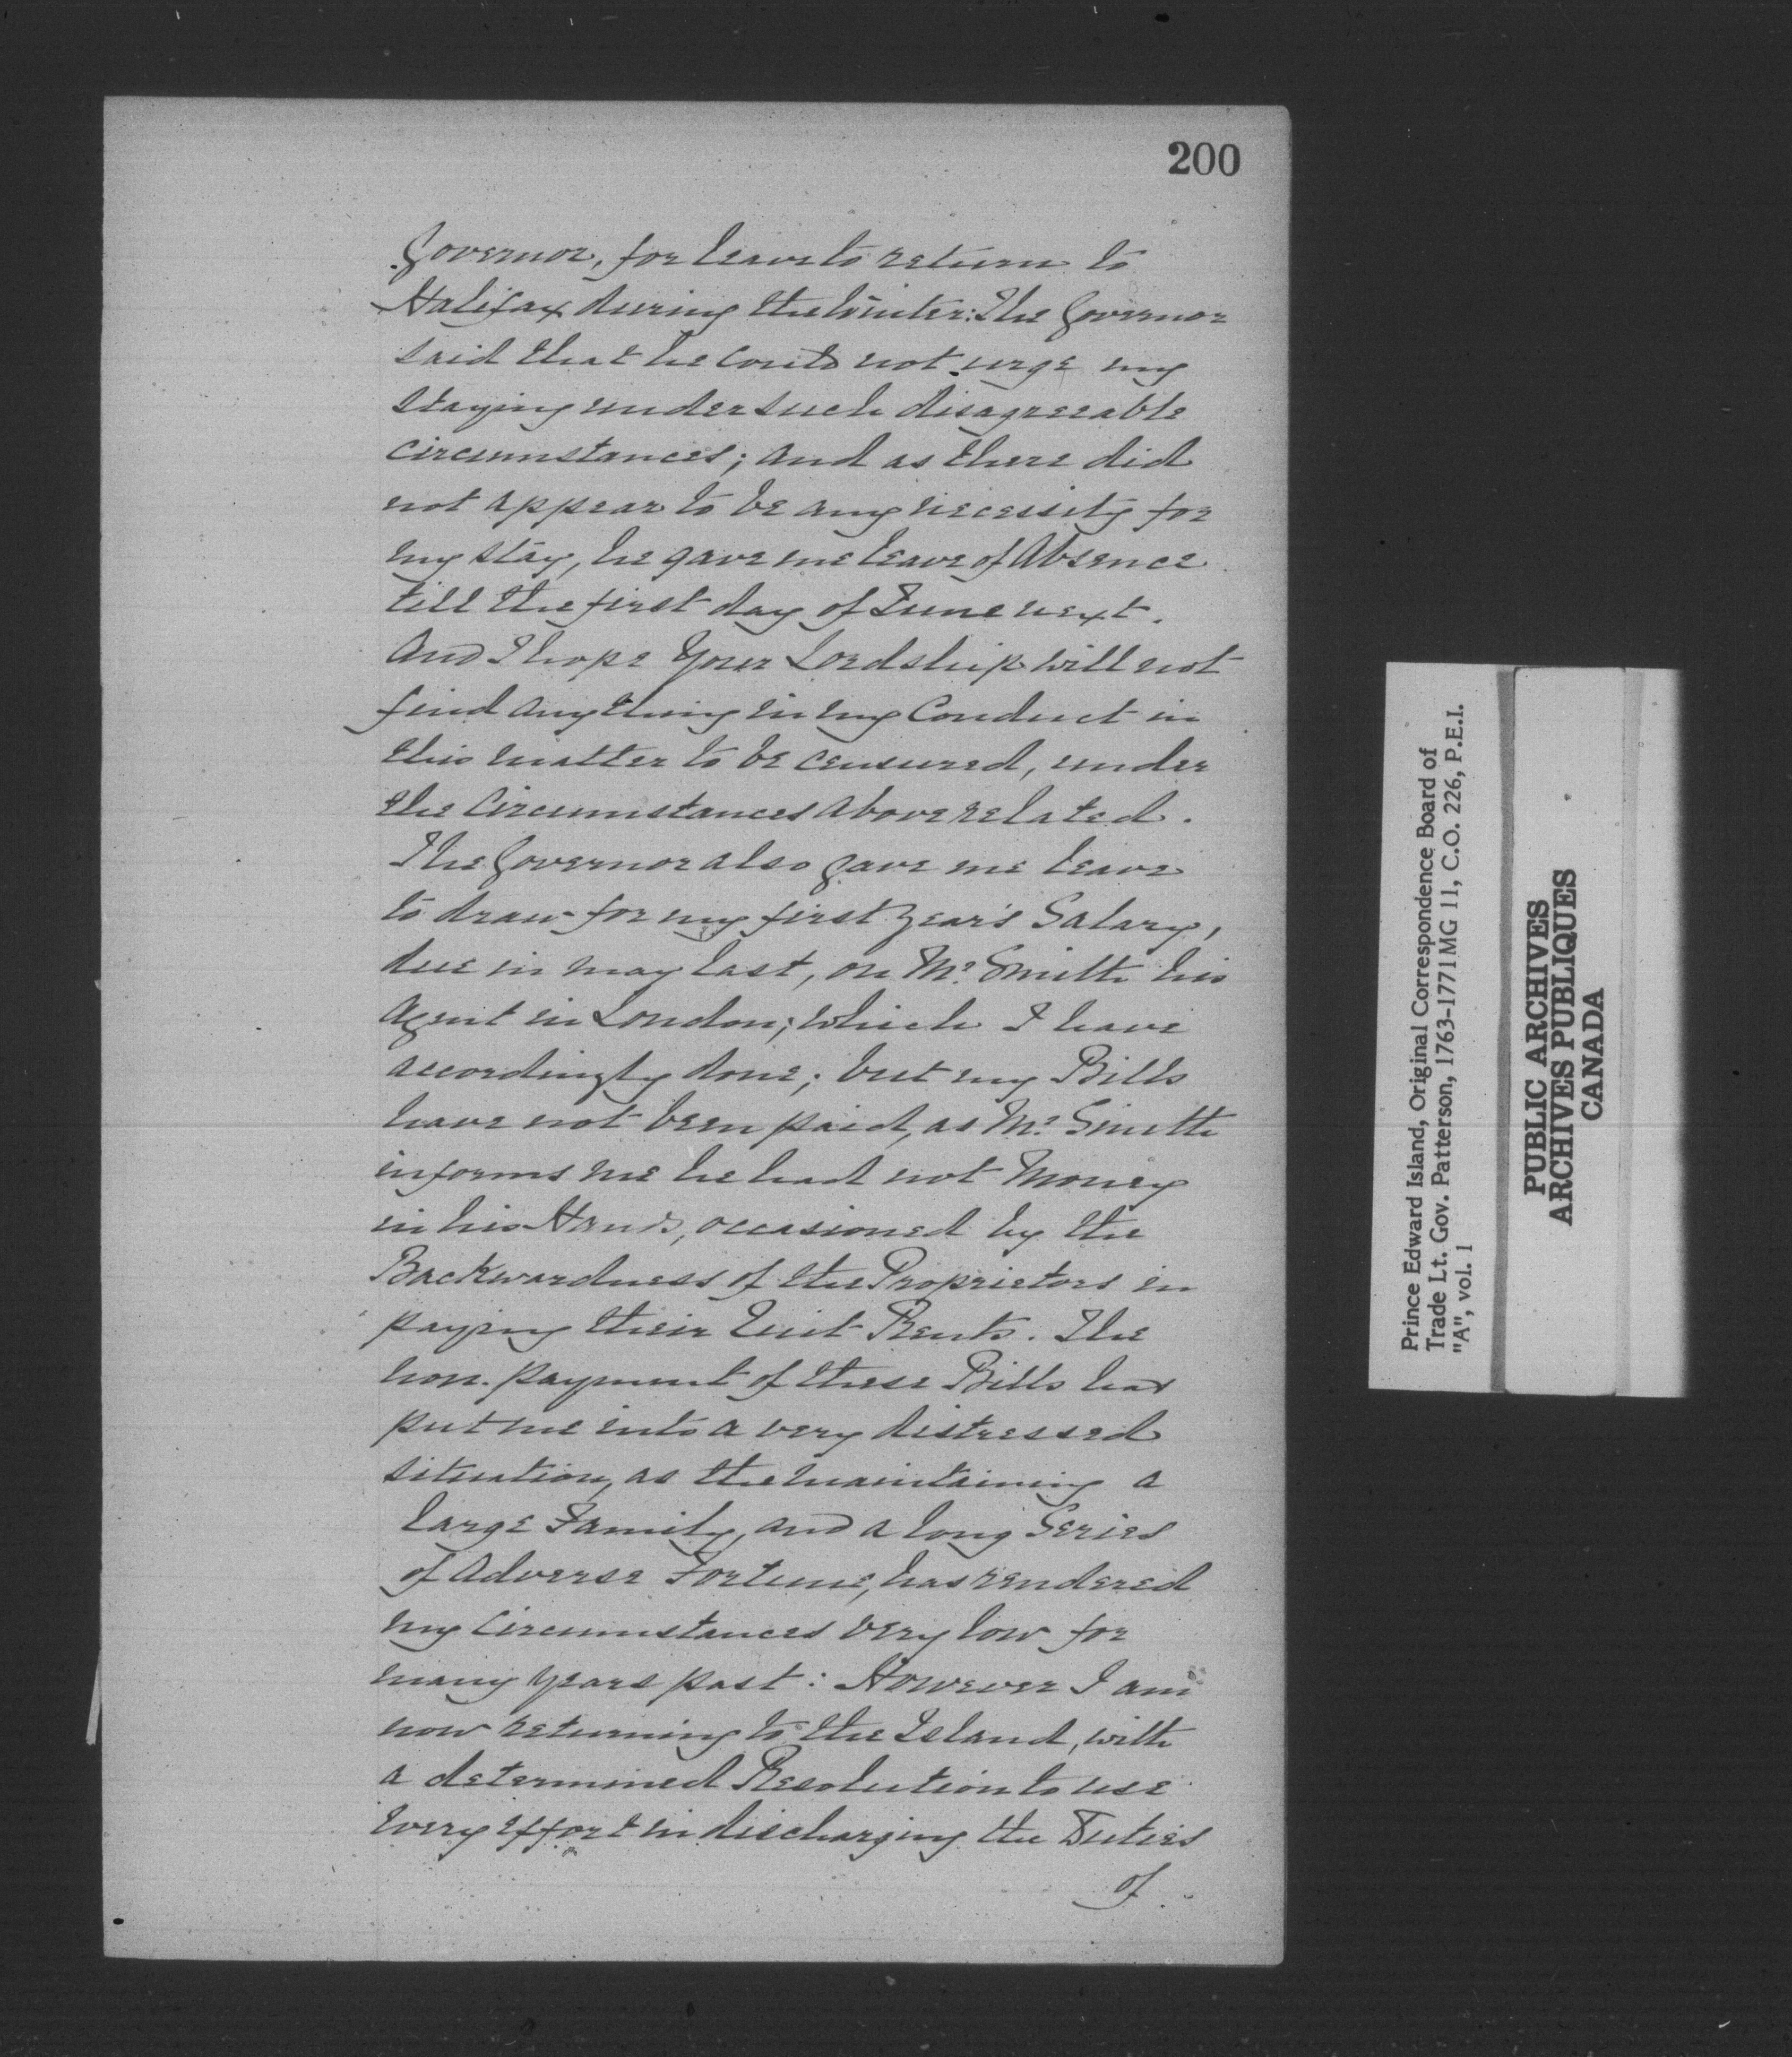 200
Governor, for leave to return to
Halifax during the Winter: The Governor
said that he could not urge my
staying under such disagreeable
circumstances; and as there did
not appear to be any necessity for
my stay, he gave me leave of Absence
till the first day of June next.
And I hope Your Lordship will not
find any thing in my Conduct in
this matter to be censured, under
the Circumstances above related.
The Governor also gave me leave
to draw for my first Year's Salary,
due in may last, on Mr. Smith his
Agent in London; which I have
accordingly done; but my Bills
have not been paid, as Mr. Smith
informs me he had not Money
in his Hands, occasioned by the
Backwardness of the Proprietors in
paying their Quit Rents. The
non-payment of these Bills has
put me into a very distressed
situation, as the maintaining a
large Family, and a long Series
of adverse Fortune, has rendered
my circumstances very low for
many years past: However I am
now returning to the Island, with
a determined Resolution to use
every effort in discharging the Duties
of
Prince Edward Island, Original Correspondence Board of
Trade Lt. Gov. Patterson, 1763-1771 MG 11, C.O. 226, P.E.I.
"A", vol. 1
PUBLIC ARCHIVES
ARCHIVES PUBLIQUES
CANADA